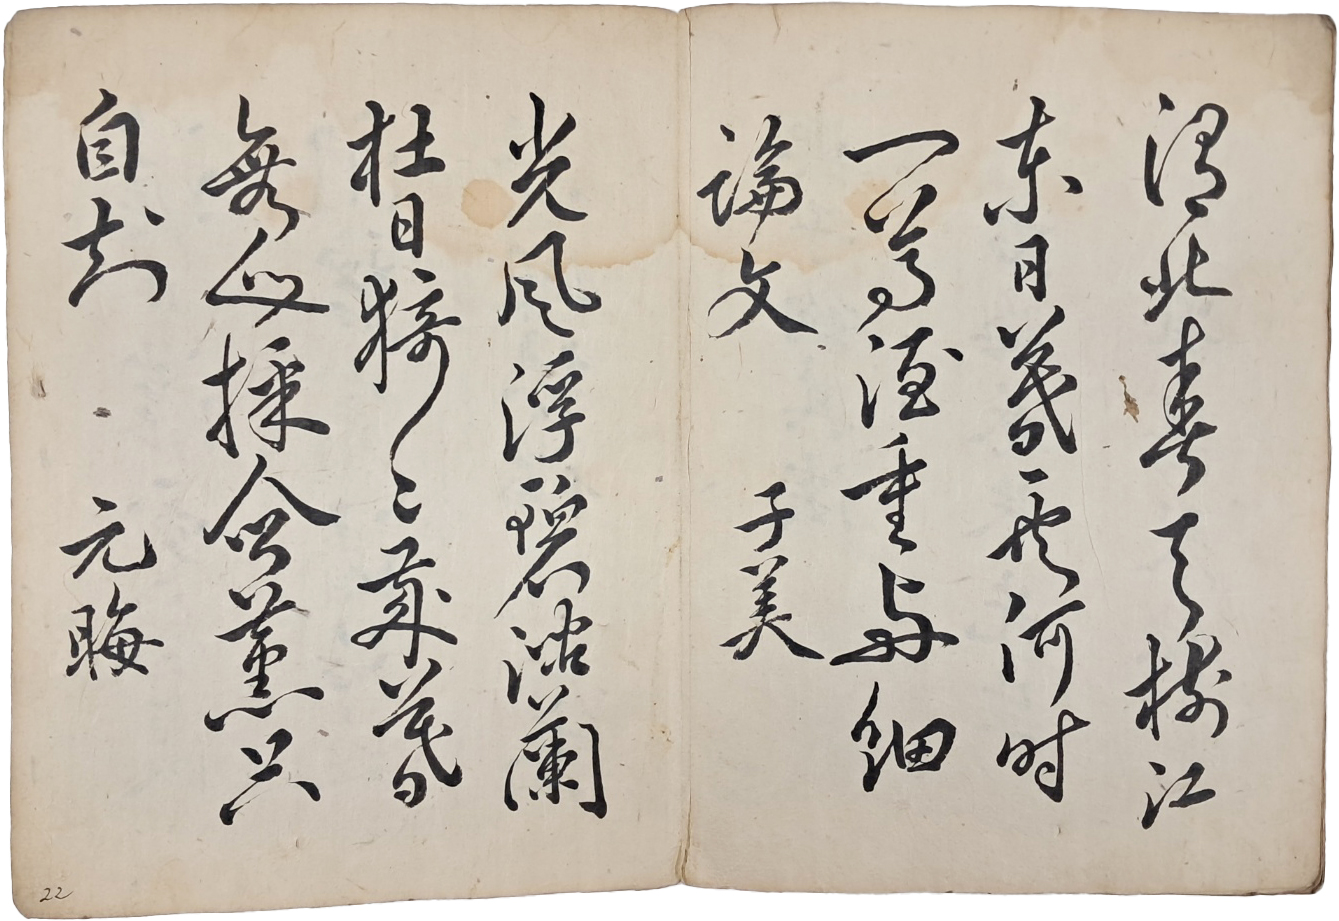 渭北春天樹江
東日暮雲何時
一尊酒重與細
論文 子美
光風浮碧沼蘭
杜日猗〻歲暮
無人採含薰只
自知 元晦
22